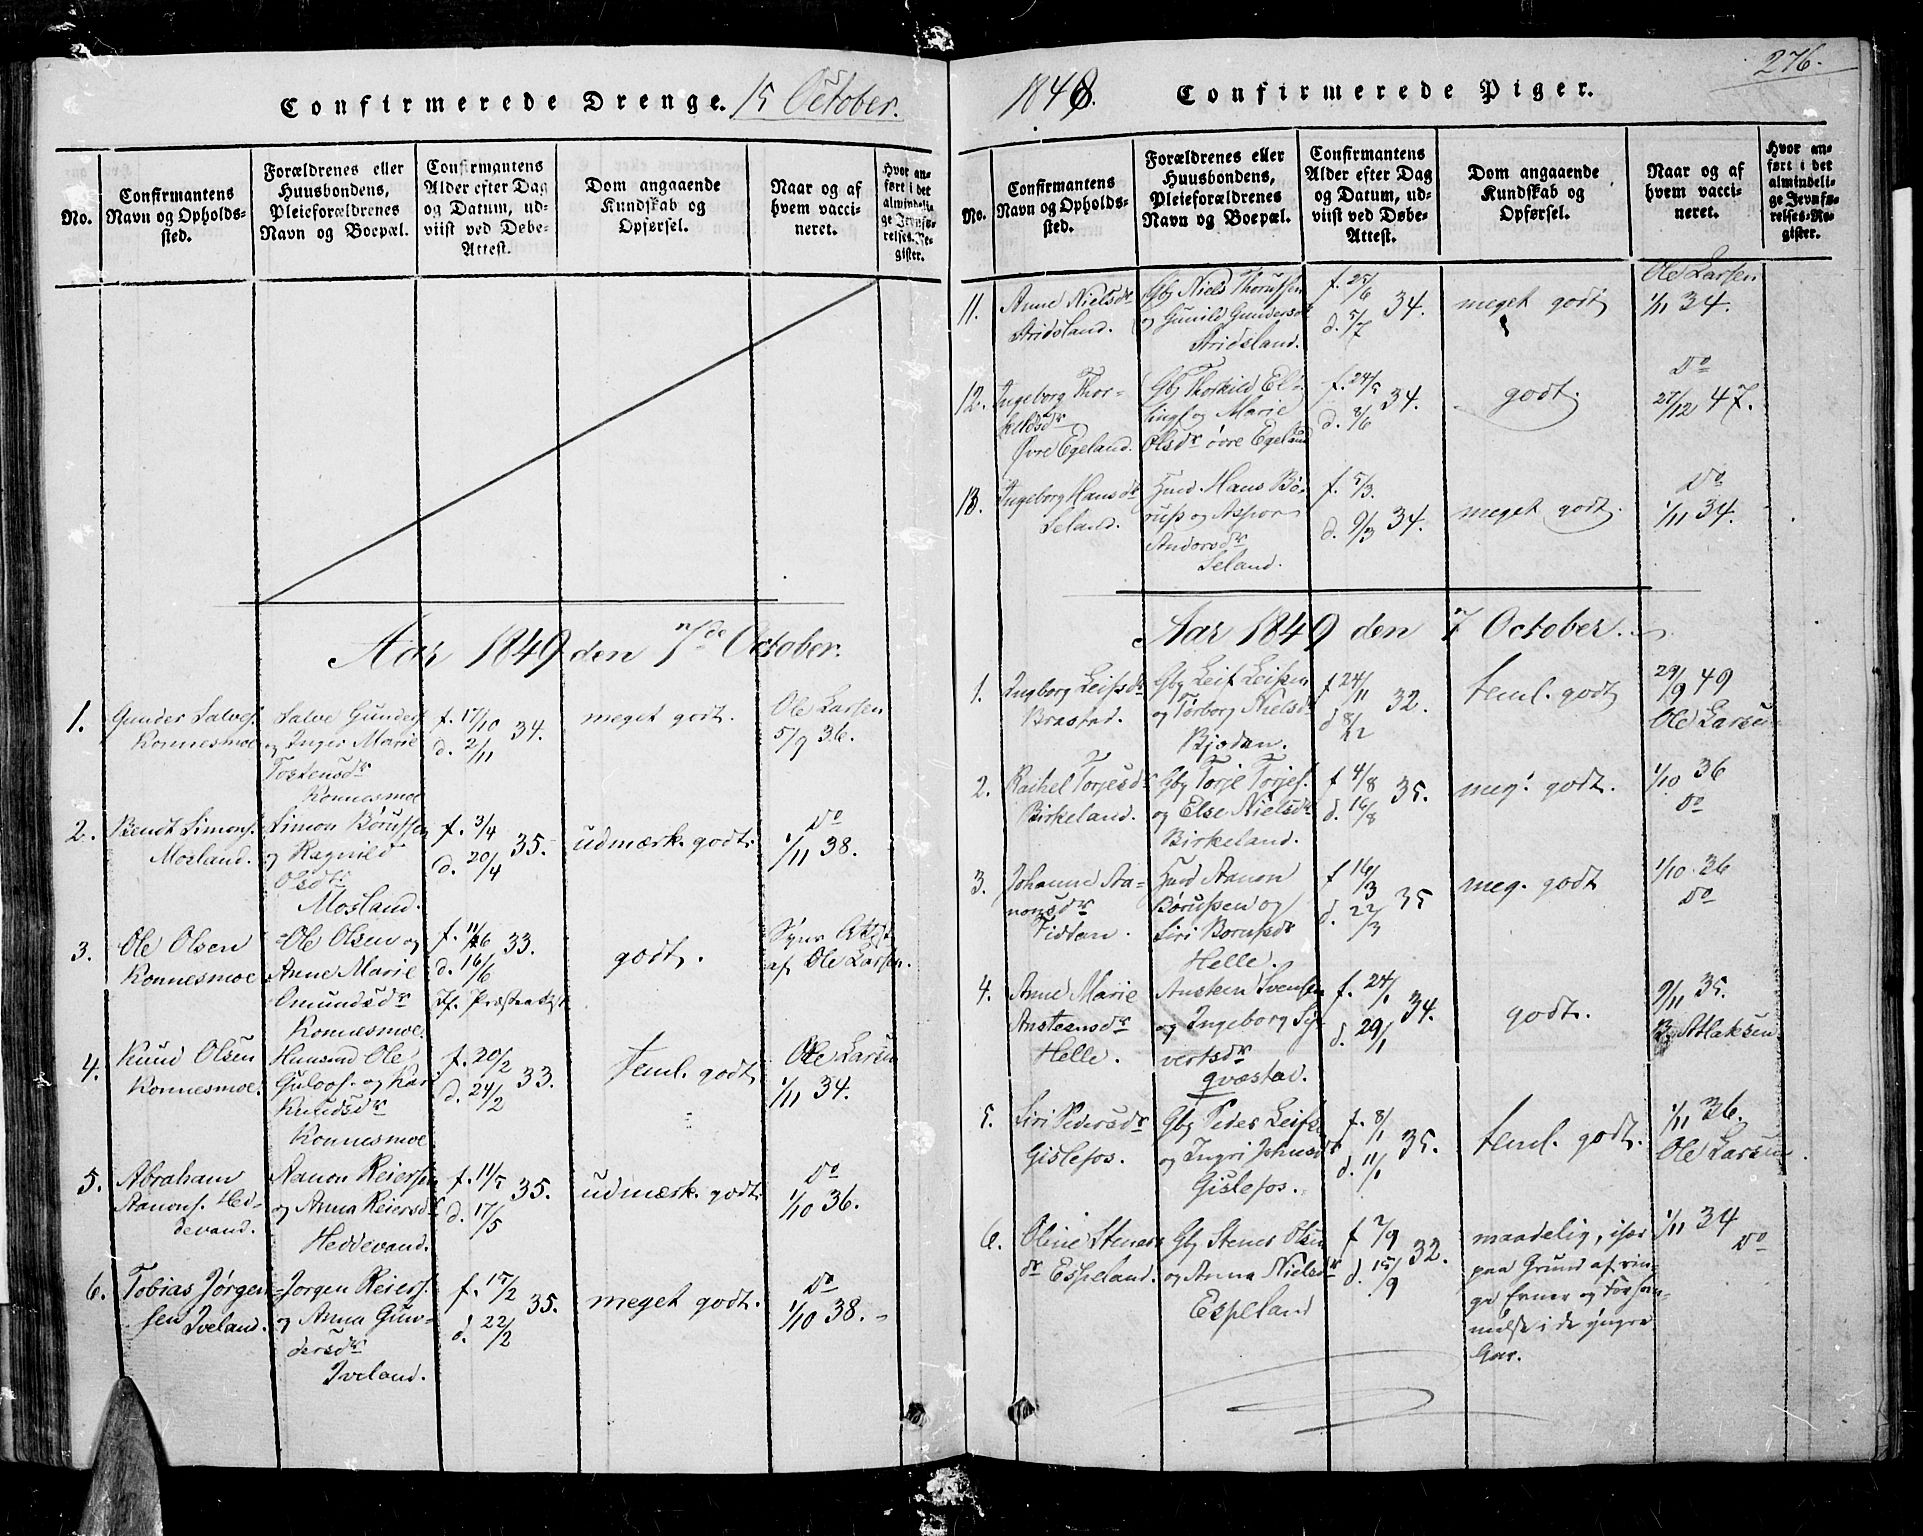 Confirmerede Drenge. 15 October.
No.
Confirmantens
Navn og Opholds-
sted.
Forældrenes eller
Huusbondens,
Pleieforældrenes
Navn og Boepæl.
Confirmantens
Alder efter Dag
og Datum, ud-
viist ved Døbe-
Attest.
Dom angaaende
Kundskab og
Opførsel.
Naar og af
hvem vacci-
neret.
Hvor an-
ført i det
almindeli-
ge Jevnfø-
relses-Re-
gister.
Aar 1849 den 7de October.
1.
Gunder Salves.
Konnesmoe
Salve Gunders.
og Inger Marie
Tostensdr
Konnesmoe
f. 17/10 34.
d. 2/11
meget godt.
Ole Larsen
5/9 36.
2.
Bendt Simons.
Mosland.
Simon Børussen
og Ragnild
Olsdtr
Mosland.
f. 3/4 35.
d. 20/4
udmærk. godt.
Do
1/11 38.
3.
Ole Olsen
Konnesmoe
Ole Olsen og
Anne Marie
Omundsdr
Konnesmoe.
f. 11/6 33.
d. 16/6
godt.
af Ole Larsen.
4.
Knud Olsen
Konnesmoe.
Huusmd Ole
Gulovs. og Kari
Knudsdr
Konnesmoe
f. 20/2 33.
d. 24/2
teml. godt
Ole Larsen
1/11 34.
5.
Abraham
Aanons. Hed-
devand.
Aanon Reiersen
og Anna Reiersdr
Heddevand.
f. 11/5 35.
d. 17/5
udmærk. godt.
Do
1/10 36.
6.
Tobias Jørgen-
sen Iveland.
Jørgen Reiers.
og Anna Gun-
dersdr
Iveland.
f. 15/2 35.
d. 22/2
meget godt.
Do
1/10 38.
1848. Confirmerede Piger.
276.
No.
Confirmantens
Navn og Opholds-
sted.
Forældrenes eller
Huusbondens,
Pleieforældrenes
Navn og Boepæl.
Confirmantens
Alder efter Dag
og Datum, ud-
viist ved Døbe-
Attest.
Dom angaaende
Kundskab og
Opførsel.
Naar og af
hvem vacci-
neret.
Hvor an-
ført i det
almindeli-
ge Jevnfø-
relses-Re-
gister.
11.
Anne Nielsdr
Aridsland.
Gbr Niels Thorussen
og Gunild Gundersdr
Aridsland.
f. 25/6 34.
d. 5/7
meget godt
Ole Larsen
1/11 34.
12.
Ingeborg Thor-
kildsdr
Øvre Egeland.
Gbr Thorkild El-
lings. og Marie
Olsdr øvre Egeland
f. 24/5 34.
d. 8/6
godt.
Do
27/12 47.
13.
Ingeborg Hansdr
Seland.
Husd. Hans Bø-
russ. og Aspor
Andersdr
Seland.
f. 5/3.
d. 9/3 34.
meget godt.
Do
1/11 34.
Aar 1849 den 7 October.
1.
Ingborg Leifsdr
Brastad.
Gbr Leif Leifsen
og Torborg Nielsdr
Bjodan.
f 24/11 32.
d 8/12
teml. godt
29/9 49
Ole Larsen
2.
Rachel Torjesdr
Birkeland.
Gbr Torje Torjes.
og Else Nielsdr
Birkeland.
f 4/8 35.
d. 16/8
meg. godt.
1/10 36
Do
3.
Johanne Aa-
nonsdr
Tidtan.
Husd Aanon
Børussen og
Siri Borussdr
Helle.
f 16/3 35
d. 22/3
meg. godt
1/10 36
Do
4.
Anne Marie
Anstensdr
Helle.
Ansten Svensen
og Ingeborg Si-
vertsdr
Qvæstad.
f. 24/1 34.
d. 29/1
godt.
9/11 35.
B. Atlaksen
5.
Siri Pedersdr
Gislefos.
Gbr Peder Leifs.
og Ingri Johnsdr
Gislefos.
f. 8/1 35.
d. 11/1
teml. godt.
1/11 36.
Ole Larsen.
6.
Oline Stener-
dr Espeland.
Gbr Stener Olsen
og Anna Nielsdr
Espeland
f 7/9 32.
d. 15/9
maadelig, især
paa Grund af rin-
ge Evner og Forsøm-
melse i de yngre
Aar.
1/11 34
Do